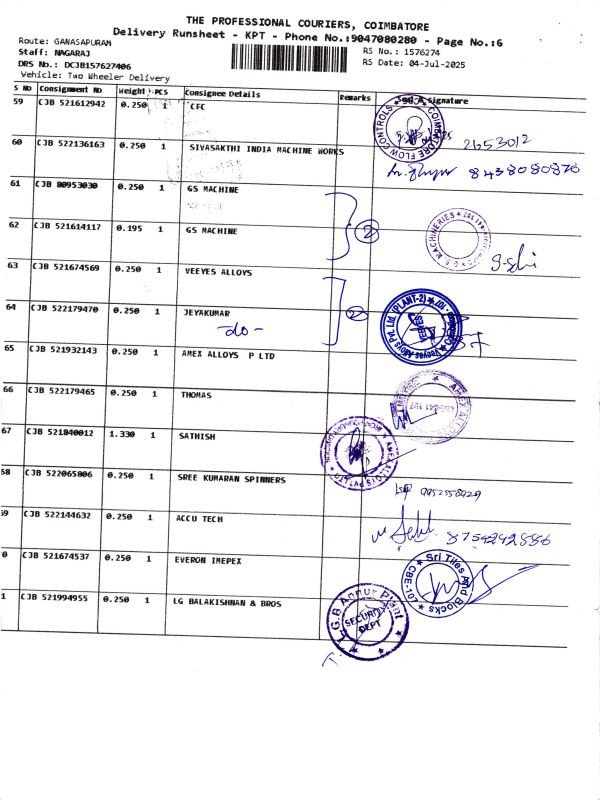 THE PROFESSIONAL COURIERS, COIMBATORE
Delivery Runsheet - KPT - Phone No.:9047080280 - Page No.:6
Route: GANASAPURAM
Staff: NAGARAJ
DRS No.: DCJB157627406
Vehicle: Two Wheeler Delivery
RS No.: 1576274
RS Date: 04-Jul-2025
S No Consignment No Weight PCS Consignee Details Remarks Signature
59 CJB 521612942 0.250 1 CFC
COIMBATORE FLOW CONTROLS
2653012
60 CJB 522136163 0.250 1 SIVASAKTHI INDIA MACHINE WORKS
8438080870
61 CJB 80953030 0.250 1 GS MACHINE
62 CJB 521614117 0.195 1 GS MACHINE
2
G.S. MACHINERIES
63 CJB 521674569 0.250 1 VEEYES ALLOYS
64 CJB 522179470 0.250 1 JEYAKUMAR
-do-
2
Veeyes Alloys Pvt. Ltd. (PLANT-2)
VEEYES
65 CJB 521932143 0.250 1 AMEX ALLOYS P LTD
66 CJB 522179465 0.250 1 THOMAS
67 CJB 521840012 1.330 1 SATHISH
AMEX ALLOYS PVT LTD
68 CJB 522065806 0.250 1 SREE KUMARAN SPINNERS
69 CJB 522144632 0.250 1 ACCU TECH
0 CJB 521674537 0.250 1 EVERON IMEPEX
Sri Tiles And Blocks
CBE-107
1 CJB 521994955 0.250 1 LG BALAKISHNAN & BROS
L.G.B Annur Plant
SECURITY
DEPT